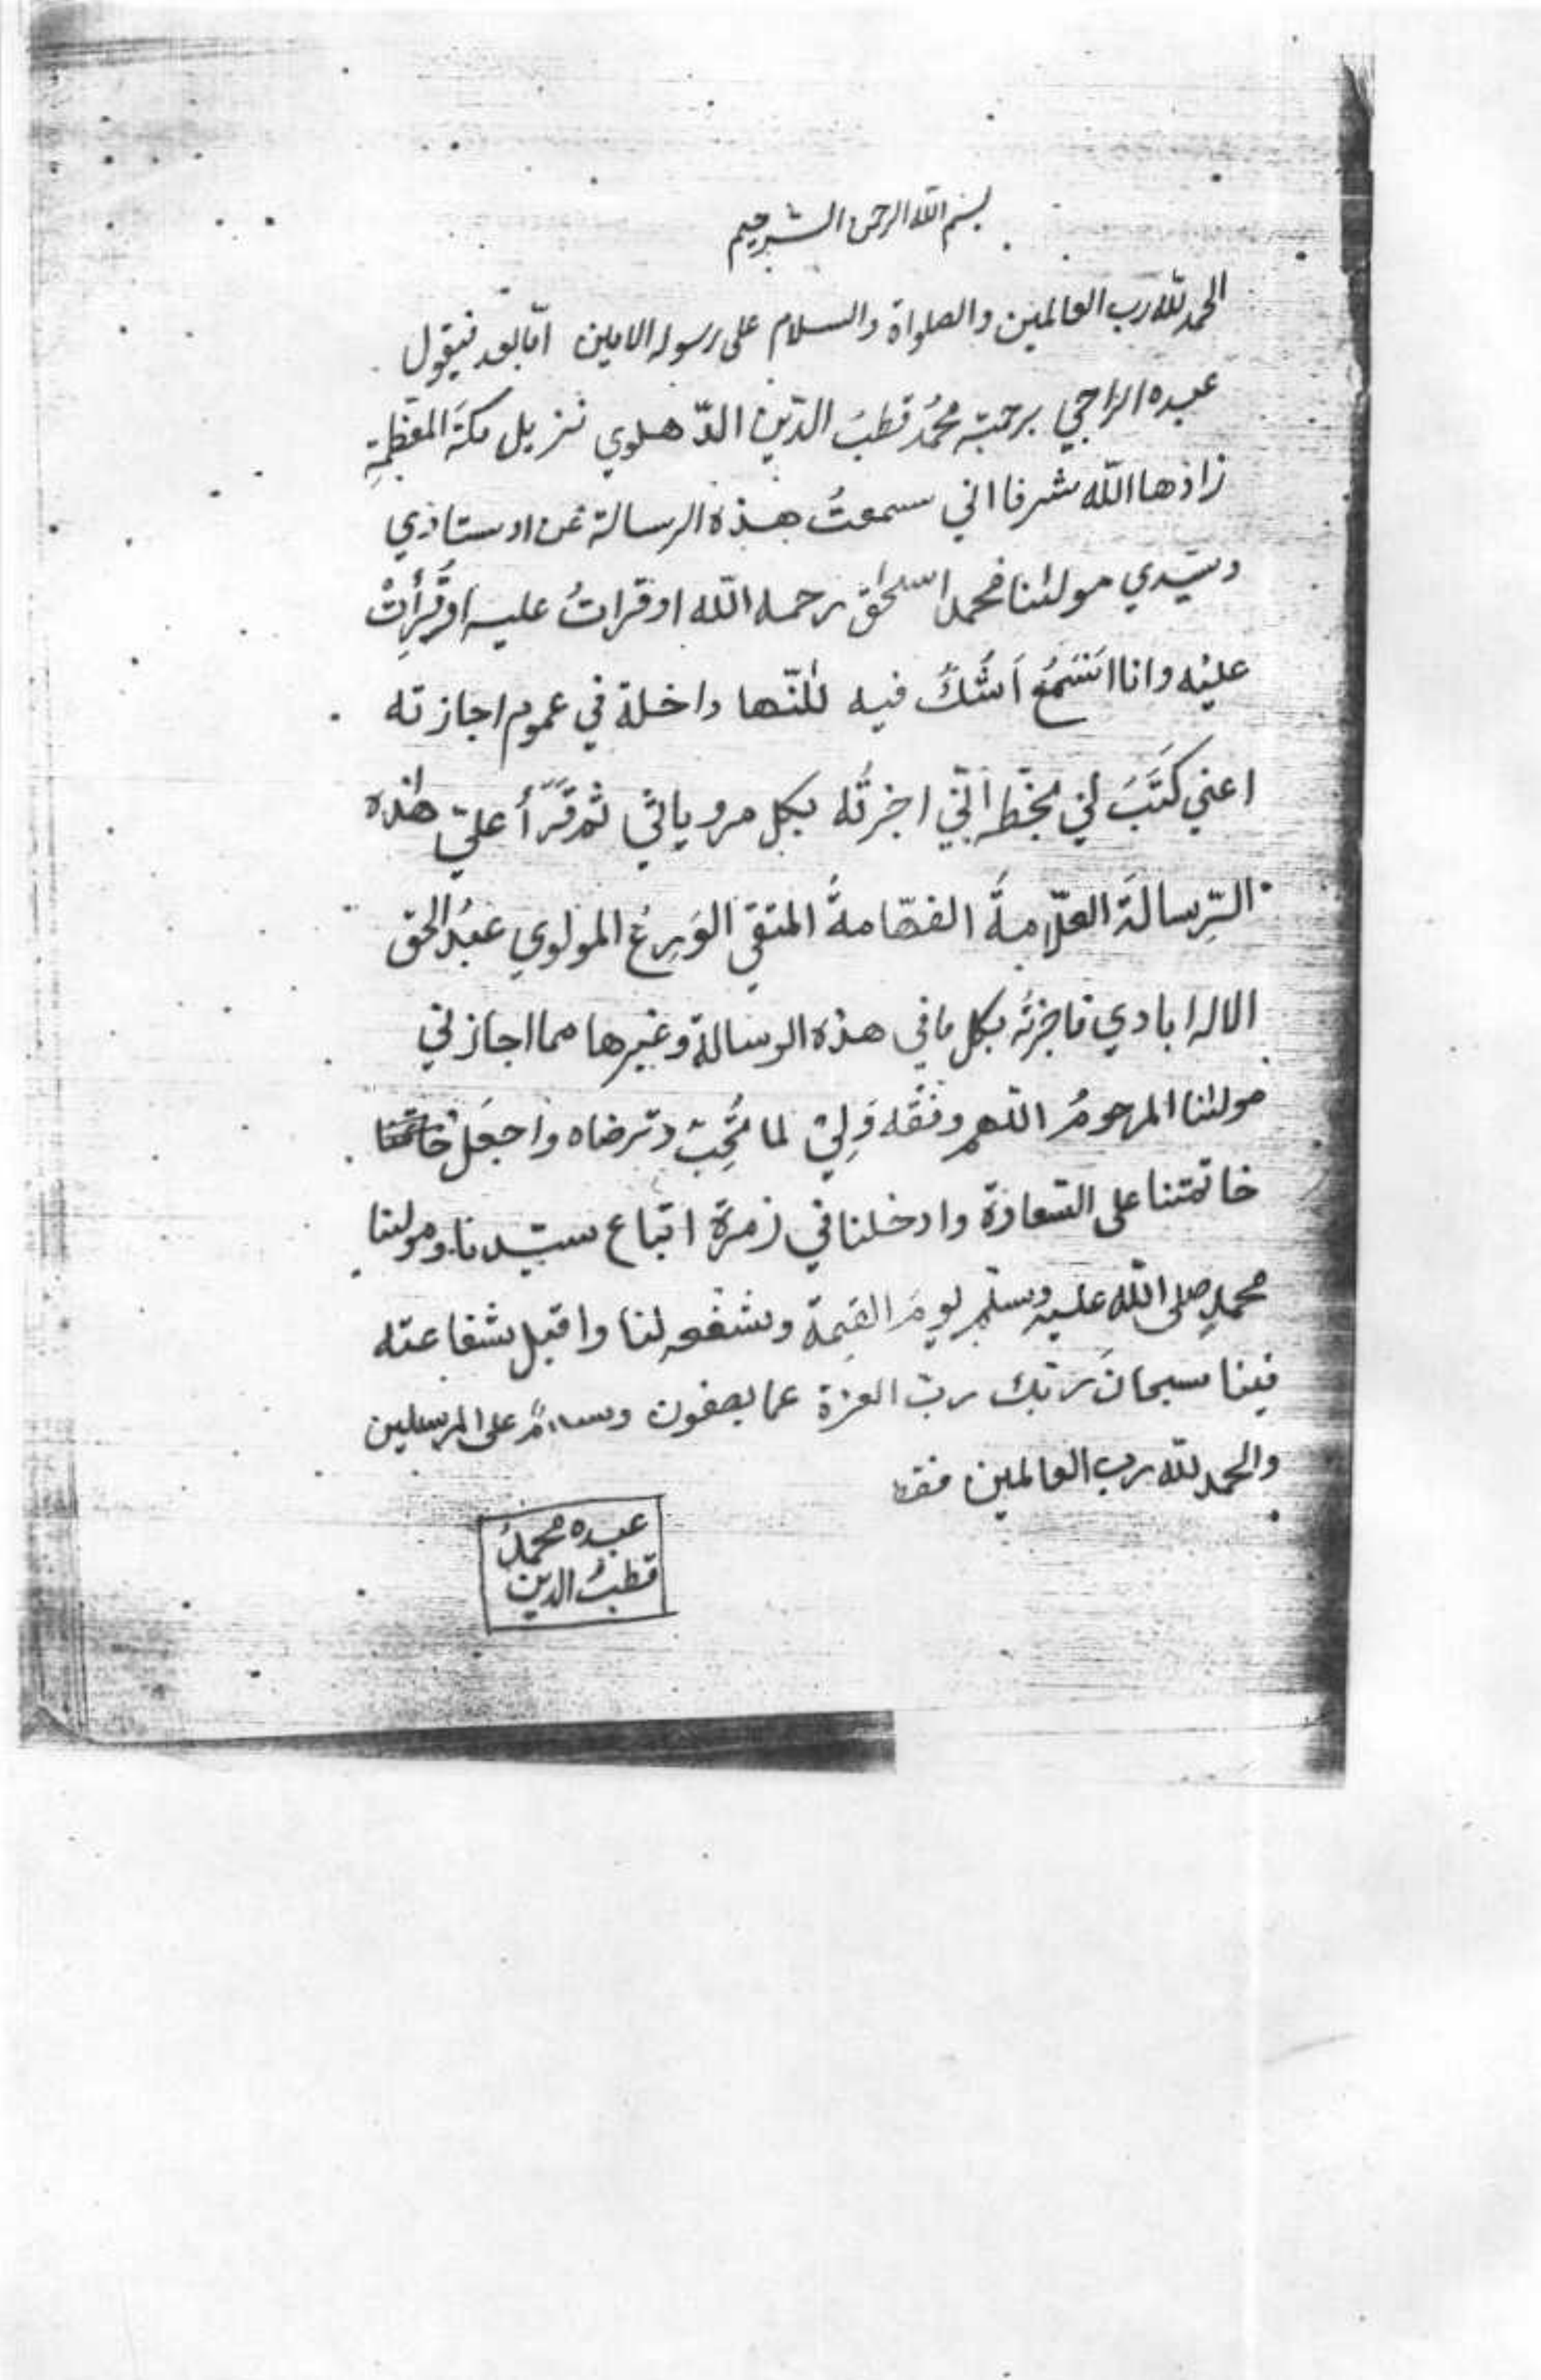 بسم الله الرحمن الرحيم
الحمد لله رب العالمين والصلواة والسلام على رسوله الامين امّا بعد فيقول
عبده الرّاجي برحمته محمدُ قطبُ الدّين الدّهلوي نزيل مكّة المعظمةِ
زادها الله شرفا اني سمعتُ هذه الرسالة عن اوستاذي
وسيّدي مولٰنا محمد اسحٰق رحمه الله اوقراتُ عليه اوقُرِأَتْ
عليْه وانا اَسْمَعُ اَشُكُّ فيه لٰكنّها داخلة في عموم اجازته
اعني كَتَبَ لي بخطّه انّي اجزتُه بكل مروياتي ثم قَرَأَ عليّ هٰذه
الرِّسالةَ العلّامةُ الفهّامةُ المتقي الوَرِعُ المولوي عبدُ الحق
الاله ابادي فاجزتُه بكل مافي هذه الرسالة وغيرها مما اجازني
مولٰنا المرحومُ اللّهم وفّقه وَلِيْ لما تُحِبّ وترضاه واجعَل خاتمتنا
خاتمتنا على السّعادة وادخلنا في زمرة اتباع سيّدنا ومولٰنا
محمدٍ صلى الله عليه وسلّم يومَ القيٰمة وشفعه لنا واقبل شفاعته
فينا سبحانَ ربّك ربّ العزة عما يصفون وسلامٌ على المرسلين
والحمد لله رب العالمين فقط
عبده محمدُ
قطبُ الدين